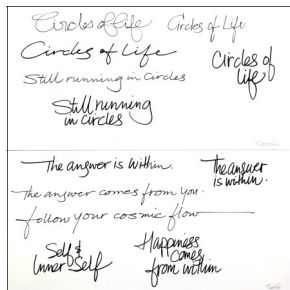 Circles of Life
Circles of Life
Circles of Life
Circles of
life
Still running in circles
Still running
in circles
The answer is within.
The answer
is within.
The answer comes from you.
follow your cosmic flow
Self &
Inner Self
Happiness
comes
from within